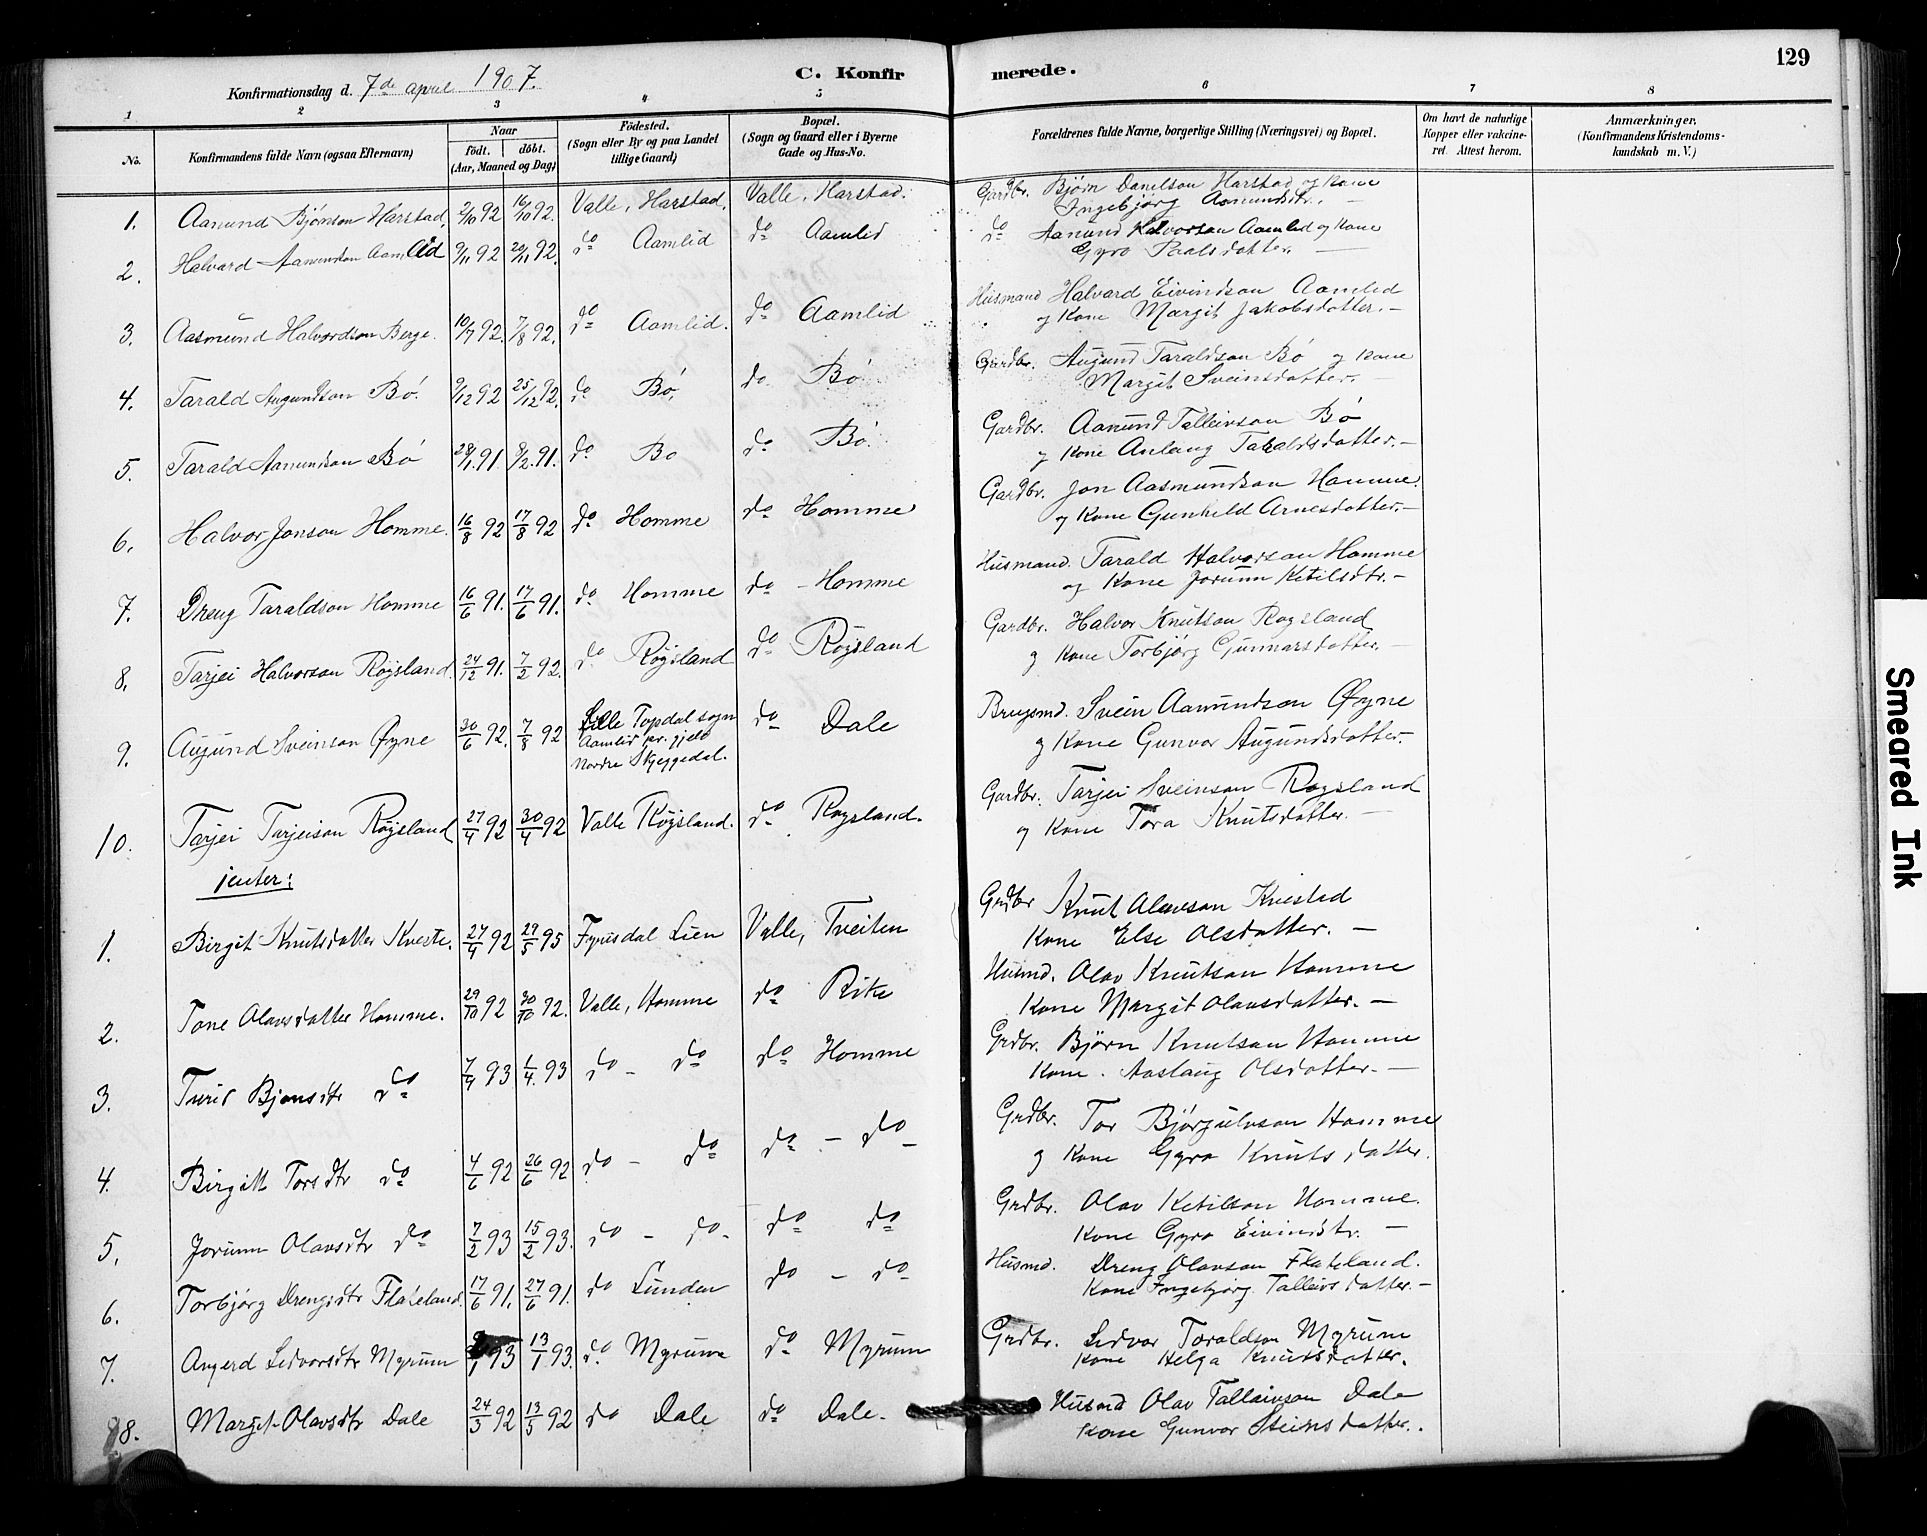 129
Konfirmationsdag d. 7de april 1907.
C. Konfirmerede.
1 2 3 4 5 6 7 8
No.
Konfirmandens fulde Navn (ogsaa Efternavn)
Naar
födt. döbt.
(Aar, Maaned og Dag)
Födested.
(Sogn eller By og paa Landet
tillige Gaard)
Bopæl.
(Sogn og Gaard eller i Byerne
Gade og Hus-No.
Forældrenes fulde Navne, borgerlige Stilling (Næringsvei) og Bopæl.
Om havt de naturlige
Kopper eller vakcine-
ret. Attest herom.
Anmærkninger.
(Konfirmandens Kristendoms-
kundskab m. V.)
1. Aanund Bjönson Harstad. 2/10 92 16/10 92. Valle, Harstad. Valle, Harstad. Gardbr. Bjørn Danielson Harstad og Kone
Ingebjørg Aamundsdtr. —
2. Halvard Aanundson Aamlid 9/11 92 20/11 92. do Aamlid do Aamlid do Aanund Halvorson Aamlid og Kone
Gyro Paalsdatter. —
3. Aasmund Halvardson Berge. 10/7 92. 7/8 92. do Aamlid. do Aamlid Husmand Halvard Eivindson Aamlid
og Kone Margit Jakobsdatter. —
4. Tarald Augundson Bö. 9/12 92 25/12 92. do Bö. do. Bö. Gardbr. Augund Taraldson Bö og Kone
Margit Sveinsdatter. —
5. Tarald Aanundson Bö 28/1 91. 8/2. 91. do Bö do Bö. Gardbr. Aanund Talleivson Bö
og Kone Anlaug Taraldsdatter. —
6. Halvor Jonson Homme. 16/8 92 17/8 92 do Homme do Homme Gardbr. Jon Aasmundson Homme.
og Kone Gunhild Arnesdatter. —
7. Dreng Taraldson Homme 16/6 91. 17/6 91. do Homme do - Homme Husmand. Tarald Halvorson Homme
og Kone Jorunn Ketilsdtr. —
8. Tarjei Halvorson Röysland. 24/12 91. 7/2 92. do Röysland do Röysland Gardbr. Halvor Knutson Rogsland
og Kone Torbjørg Gunnarsdatter. —
9. Augund Sveinson Øyne 30/6 92. 7/8 92 Lille Topdal sogn do Dale Brugsmd. Svein Aanundson Øyne
Aamlid pr. gjeld
Nordre Skjeggedal.
og Kone Gunvor Augundsdatter.
10. Tarjei Tarjeison Röysland 27/4 92 30/4 92 Valle Röysland. do Rogsland. Gardbr. Tarjei Sveinson Rogsland
og Kone Tora Knutsdatter. —
jenter:
1. Birgit Knutsdatter Kveste. 27/4 92 29/5 95 Fyrisdal Lien Valle, Tveiten Grdbr Knut Olavson Kvestad
Kone Else Olsdatter. —
2. Tone Olavsdatter Homme. 29/10 92 30/10 92. Valle, Homme do Rike Husmd. Olav Knutson Homme
Kone Margit Olavsdatter. —
3. Turid Bjonsdtr do 7/4 93 1/4. 93 do - do do Homme Grdbr. Bjørn Knutson Homme
Kone. Aaslaug Olsdatter. —
4. Birgitt Torsdtr do 4/6 92 26/6 92 do - do do - do Grdbr. Tor Bjørgulvson Homme
og Kone Gyro Knutsdatter.
5. Jorunn Olavsdtr do 7/2 93 15/2 93. do - do. do do Grdbr. Olav Ketilson Homme.
Kone Gyro Eivindstr. —
6. Torbjørg Drengsdtr Flateland. 17/6 91. 27/6 91. do Lunden do - do Husmd. Dreng Olavson Flateland.
Kone Ingebjørg Talleivsdatter. —
7. Angerd Lidvorsdtr Myrum 1 93 13/1 93. do. Myrum do Myrum Grdbr. Lidvor Toraldson Myrum
Kone Helga Knutsdatter.
8. Margit Olavsdtr Dale 24/5 92 13/5 92 do Dale do Dale. Husmd Olav Talleivson Dale
Kone Gunvor Steinsdatter.
Smeared Ink